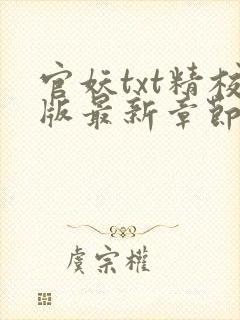 官妖txt精校
版最新章節
虞宗權